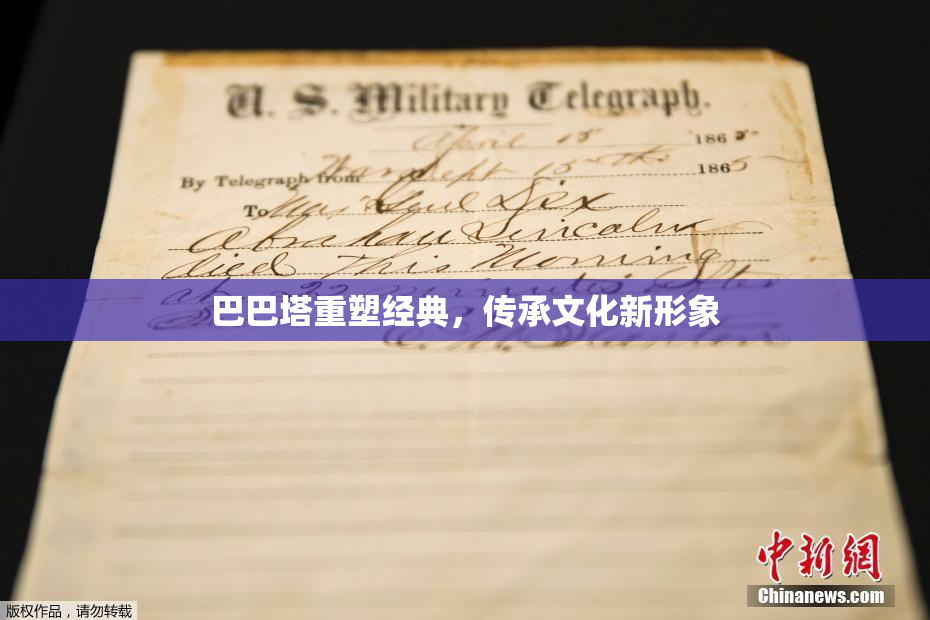 U. S. Military Telegraph.
April 15 1865
By Telegraph from War Dept 15th 1865
To Maj Genl Dix
Abraham Lincoln
died This Morning
at 22 minutes after
巴巴塔重塑经典，传承文化新形象
E. M. Stanton
中新网
Chinanews.com
版权作品，请勿转载